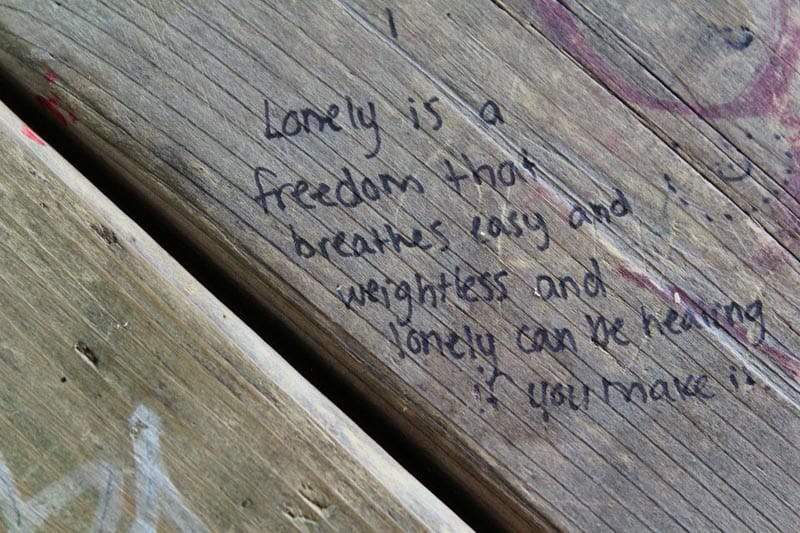 Lonely is a
freedom that
breathes easy and
weightless and
lonely can be healing
if you make it.